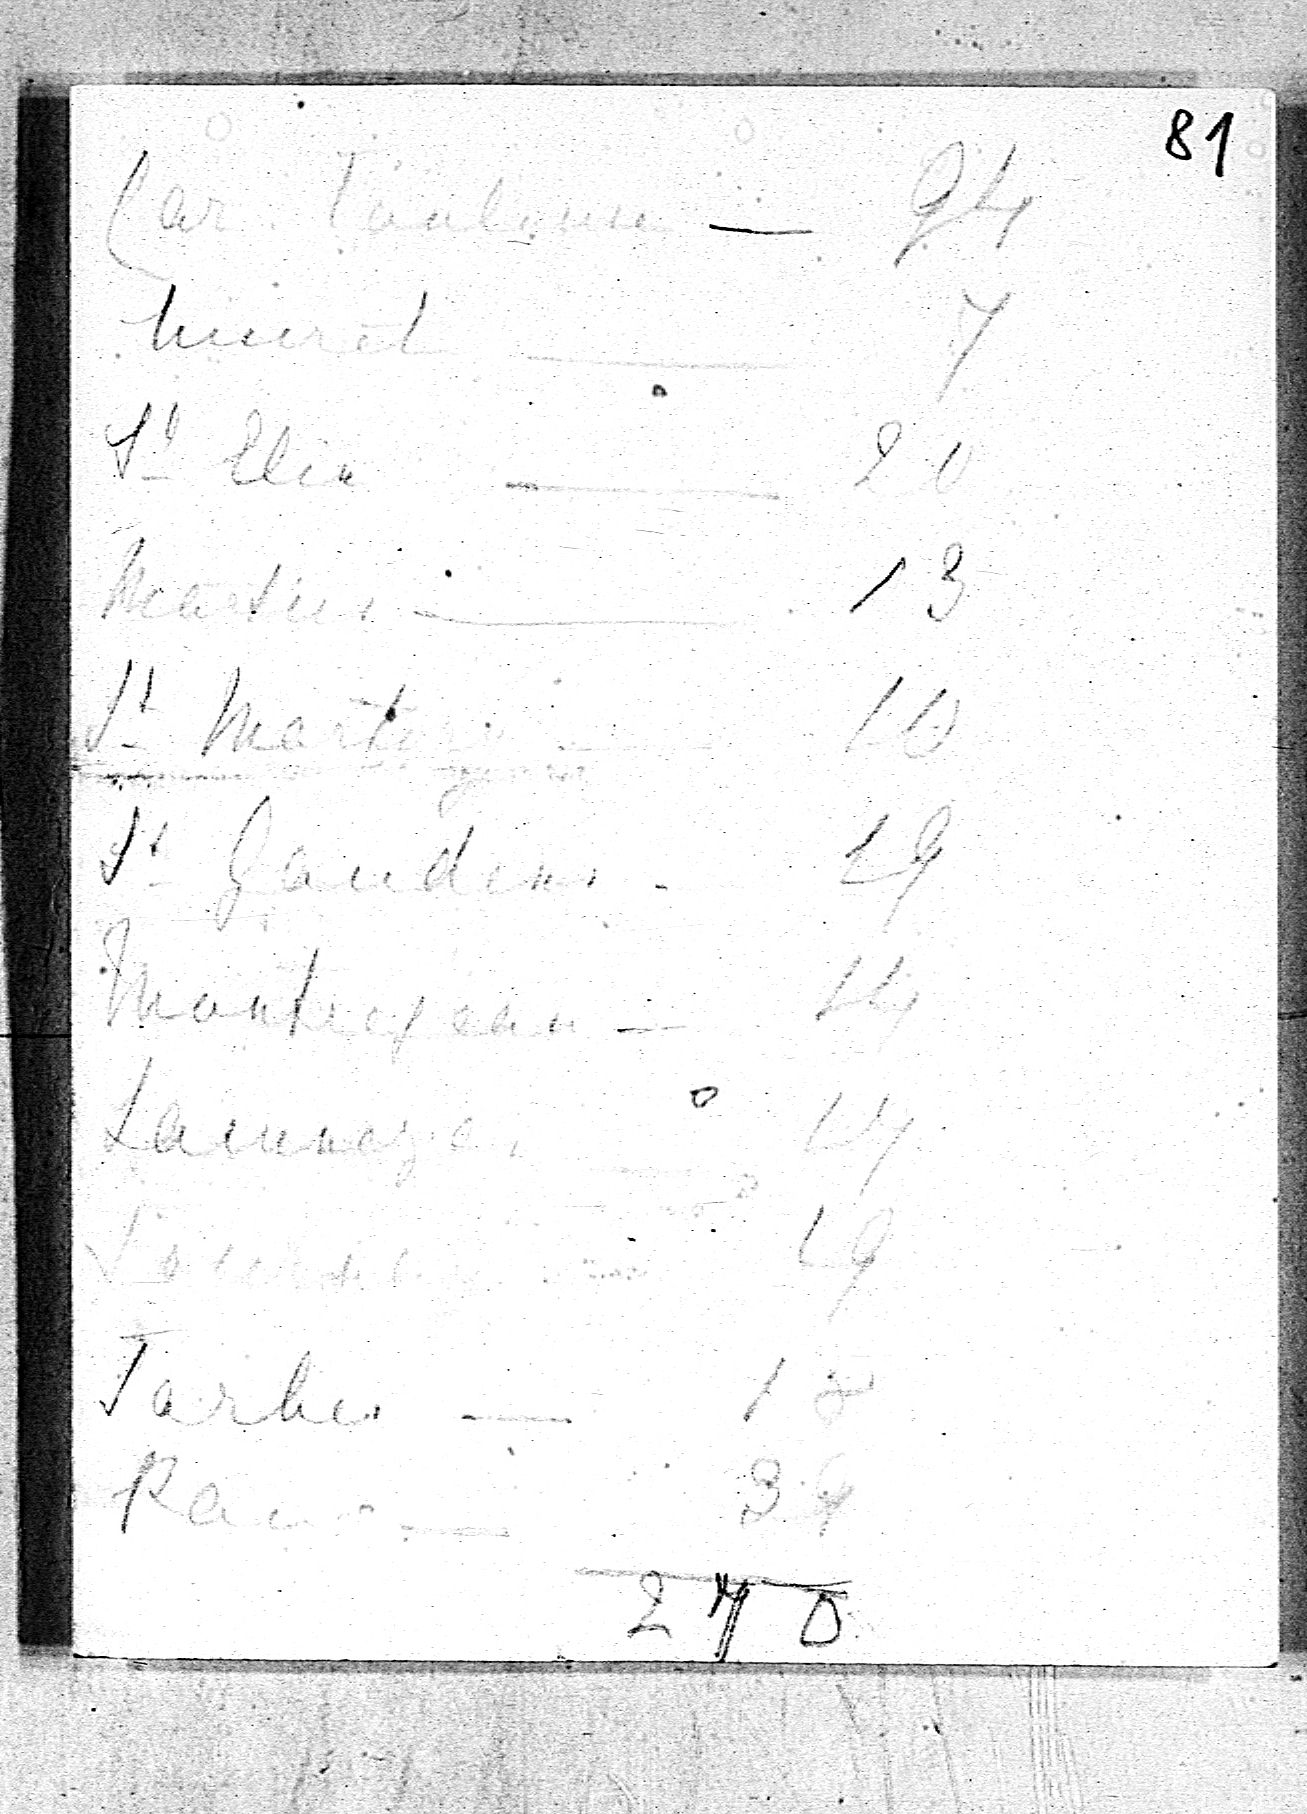 81
Car. Toulouse — 94
Muret — 7
St Elix — 20
Martres — 13
St Martory — 10
St Gaudens - 19
Montrejeau — 14
— 17
19
Tarbes — 18
Pau — 39
270